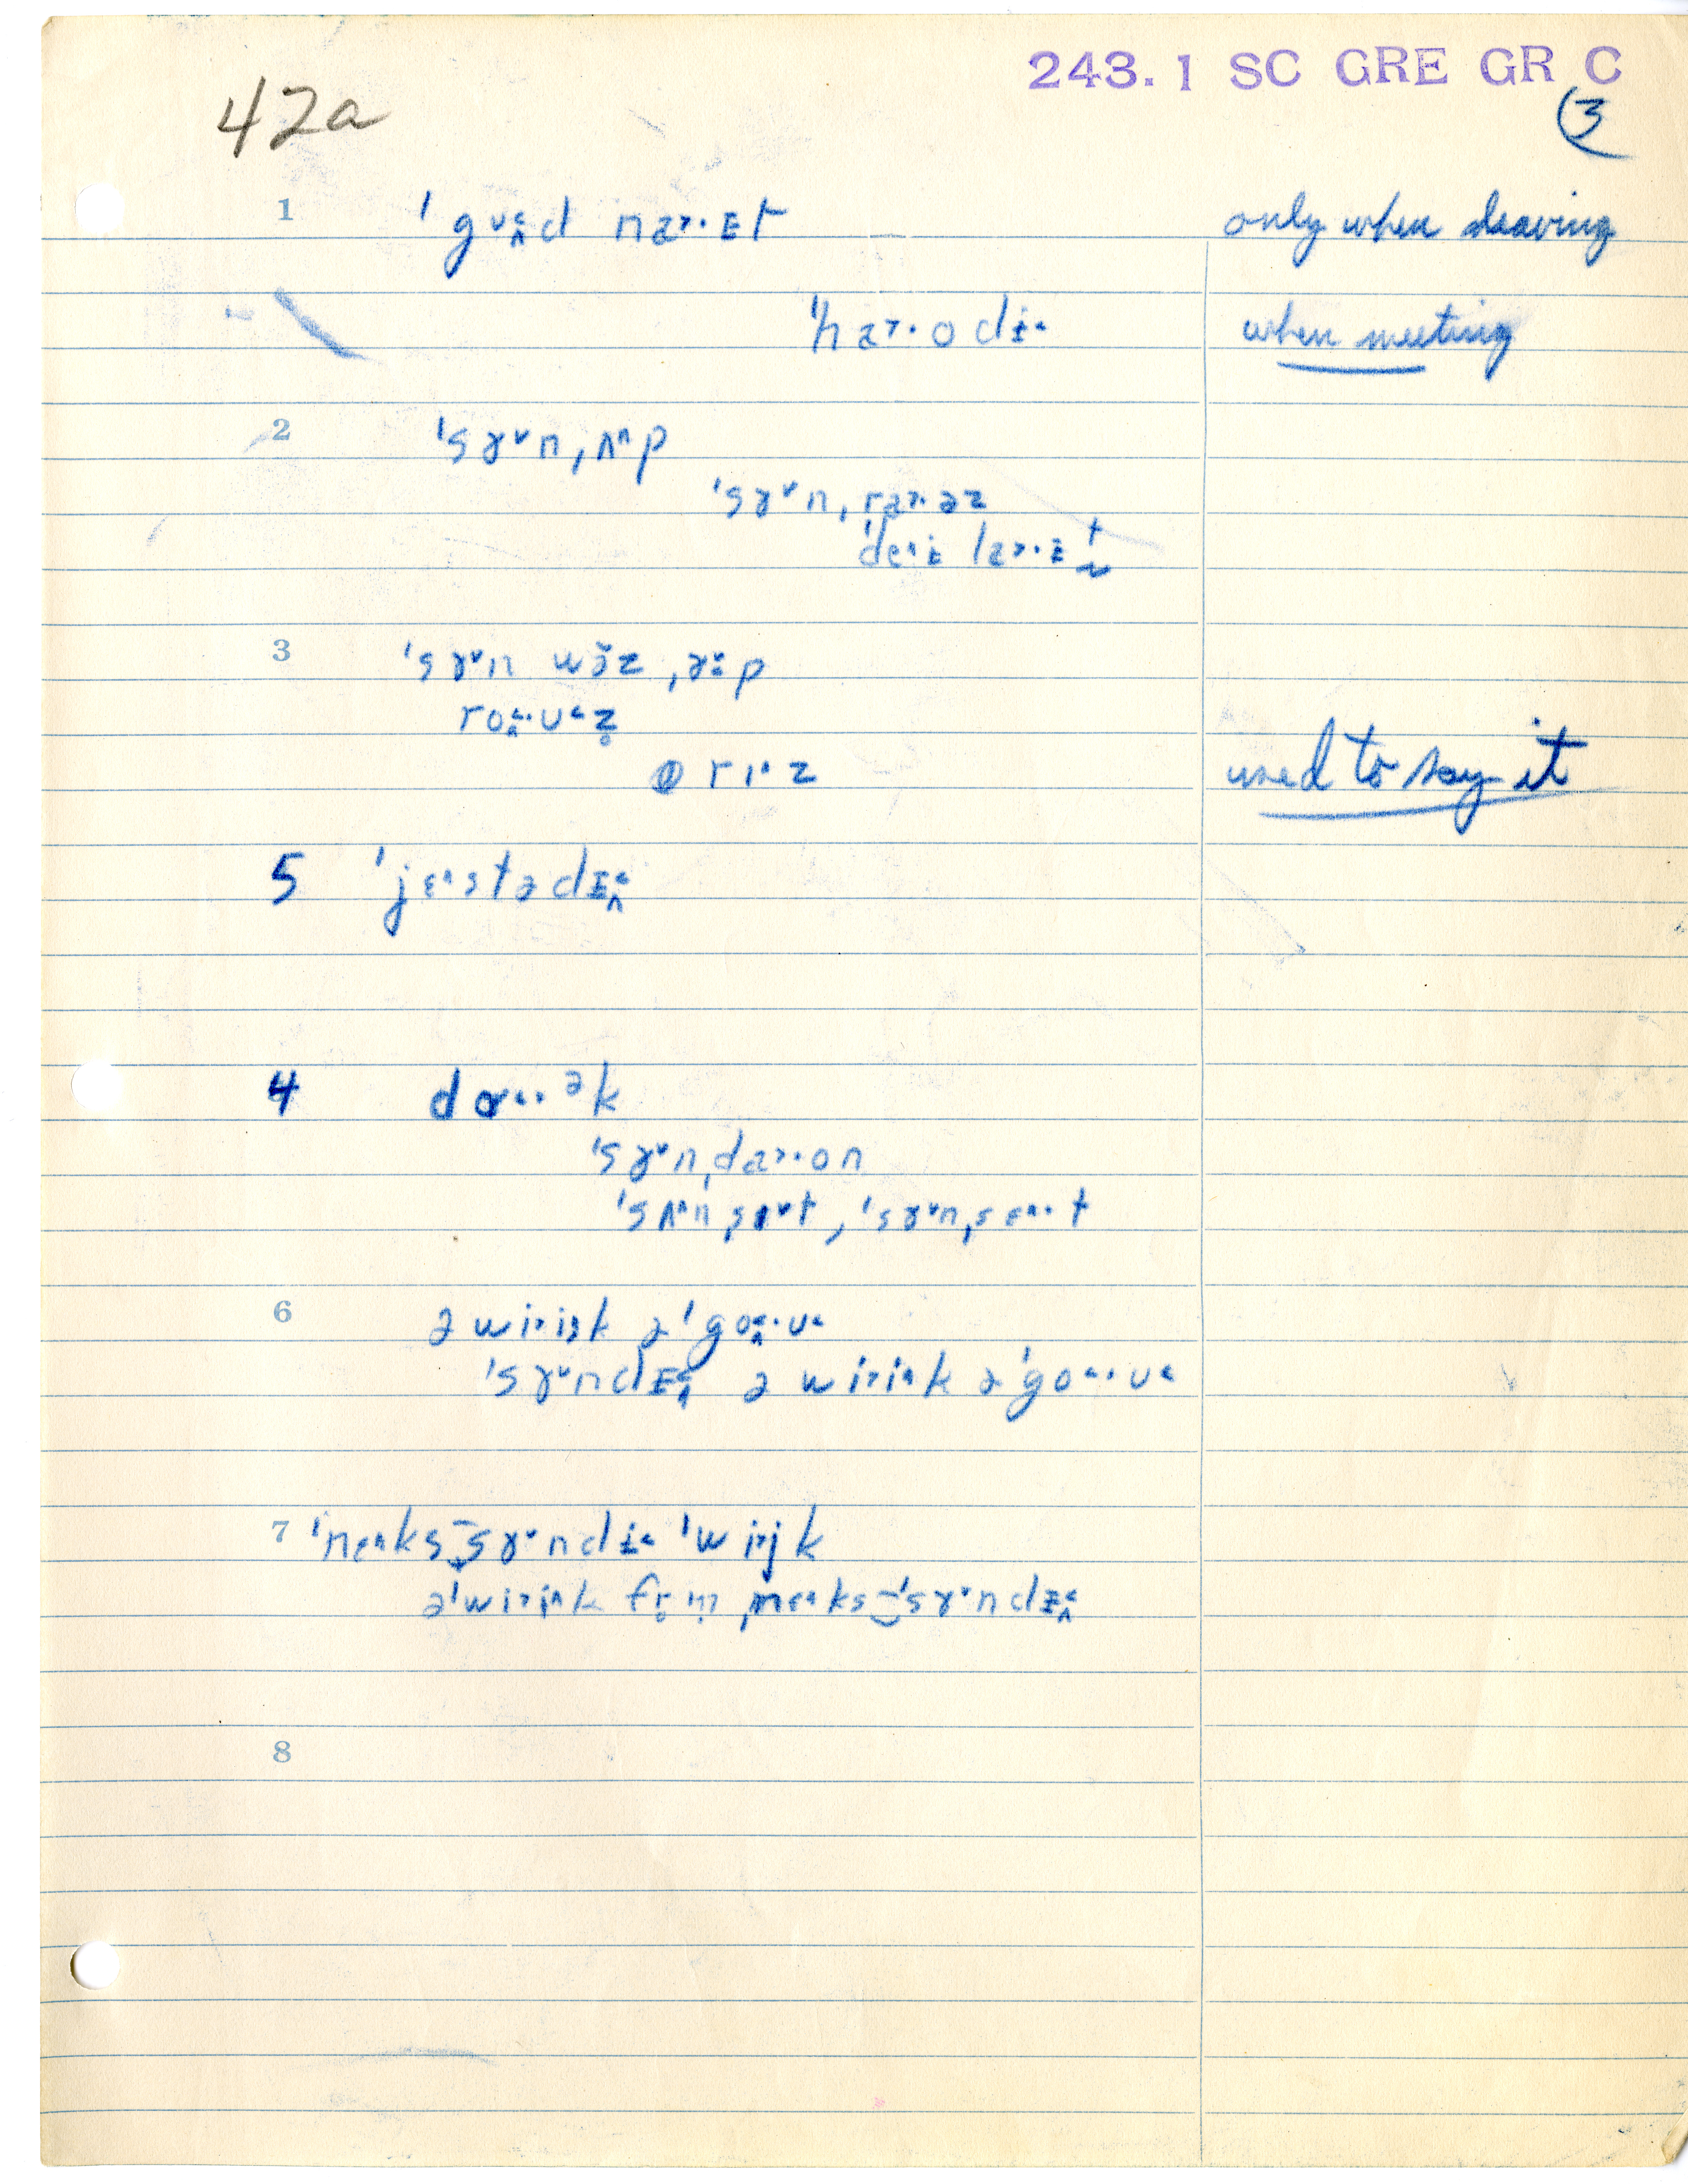 243.1 SC GRE GR C
42a
3
1 ˈgʊ˂ʌd naˑɪt only when leaving
ˈhaˑo dɨ˂ when meeting
2 ˈsɤ˅nˌʌ˄p
ˈsɤ˅nˌraˑəz
ˈdeɪ laˑɪt
3 ˈsɤ˅n wɤ̆zˌɤp
roˑʊ˂z̥
rɪz used to say it
5 ˈjɛ˄stədɪ˂
4 dɑ˂ˑək
ˈsɤ˅nˌdaˑon
ˈsʌ˄nˌsɛt, ˈsɤ˅nˌsɛˑt
6 ə wi˃i˄k əˈgo˂ˑʊ˂
ˈsɤ˅ndɪ˂ ə wi˃i˄k əˈgo˂ˑʊ˂
7 ˈnɛ˄ks‿sɤ˅ndɨ˂ ˈwi˃jk
əˈwi˃i˄k fr̥m̩ ˌnɛ˄ks‿ˈsɤ˅ndɪ˂
8